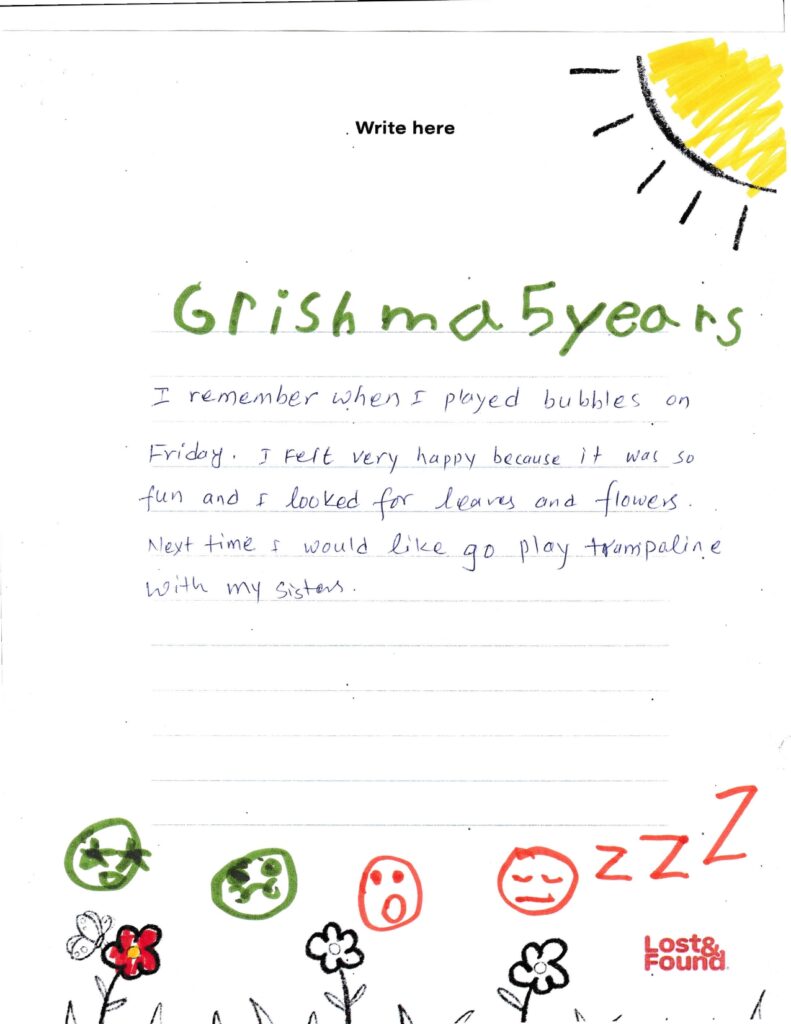 Write here
Grishma 5 years
I remember when I played bubbles on
Friday. I Felt very happy because it was so
fun and I looked for leaves and flowers.
Next time I would like go play trampaline
with my sisters.
zzZ
Lost&
Found